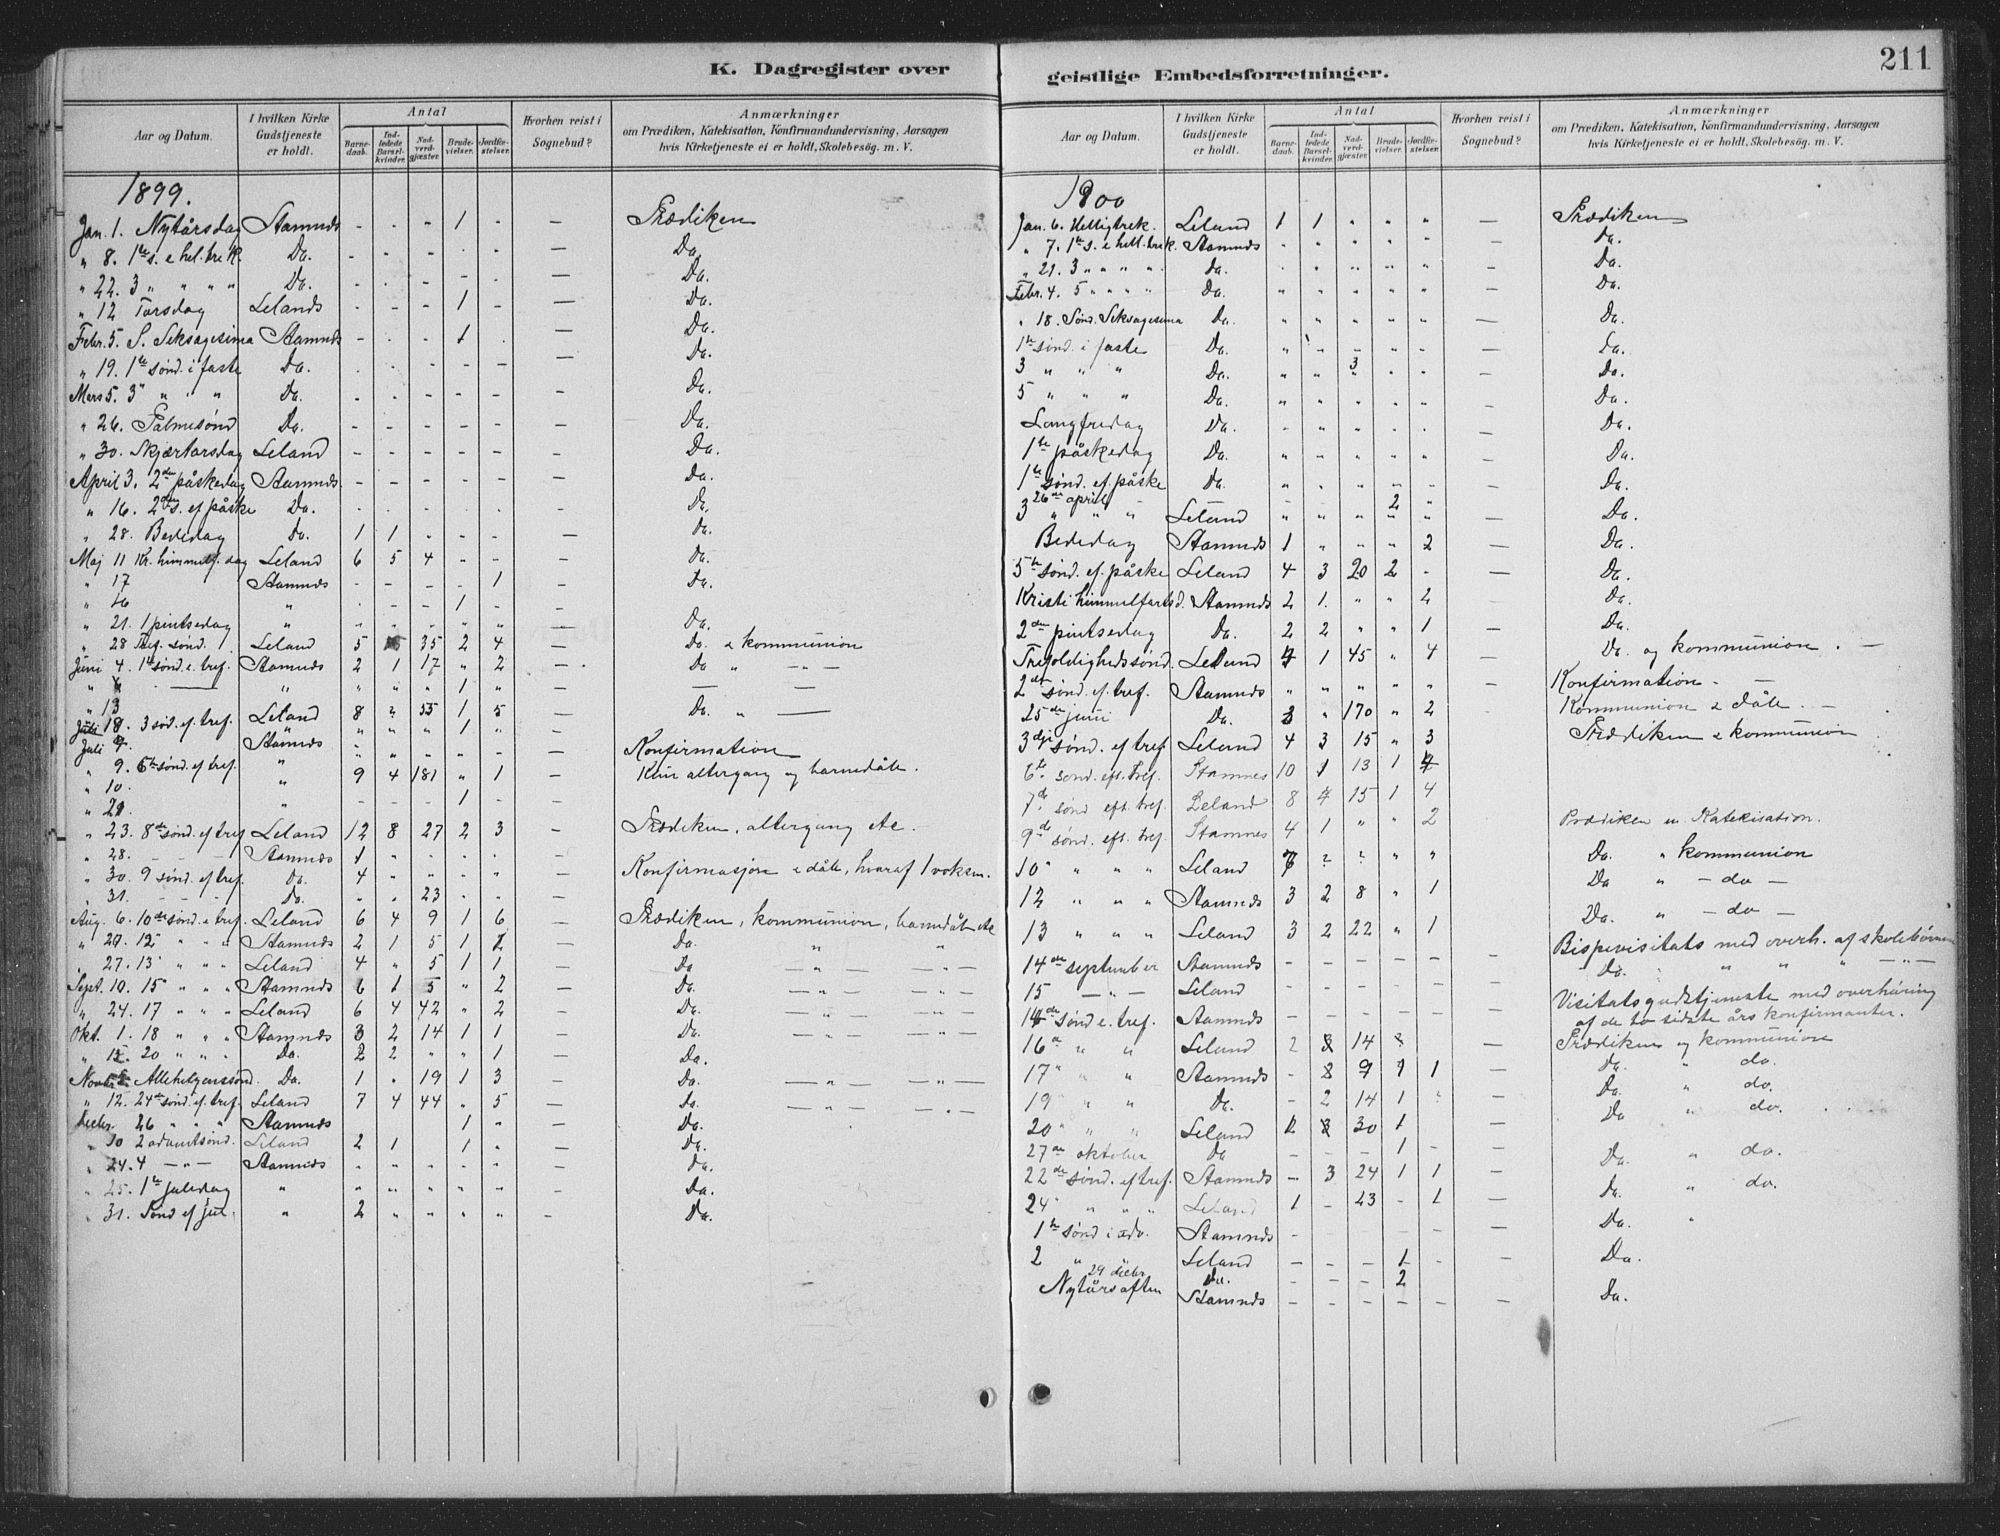 K. Dagregister over
Aar og Datum.
I hvilken Kirke Gudstjeneste er holdt.
Antal
Barne-daab.
Ind-ledede Barsel-kvinder.
Nad-verd-gjæster.
Brude-vielser.
Jordfæ-stelser.
Hvorhen reist i Sognebud?
Anmærkninger
om Prædiken, Katekisation, Konfirmandundervisning, Aarsagen
hvis Kirketjeneste ei er holdt, Skolebesøg. m. V.
1899.
Jan. 1. Nytårsdag Stamnes - - - 1 - — Prædiken
" 8. 1te s. e hel. trek. Do. - - - - - — Do.
" 22. 3 " " " " Do. - - - - - — Do.
" 12 Torsdag Lelands - - - 1 - — Do.
Febr. 5. S. Seksagesima Stamnes - - - 1 - — Do.
" 19. 1te sønd. i faste Do. - - - - - — Do.
Mars 5. 3 " " " Do. - - - - - — Do.
" 26. Palmesønd Do. - - - - - — Do.
" 30. Skjærtorsdag Leland - - - - - — Do.
April 3. 2den påskedag Stamnes - - - - - — Do.
" 16. 2den s. ef påske Do. - - - - - — Do.
" 28. Bededag Do. 1 1 - - - — Do.
Maj 11 Kr. himmelf. dag Leland 6 5 4 - - — Do.
" 17 Stamnes - - - - 1 — Do.
" 16 " - - - 1 -
" 21. 1 pintsedag " " " " " " — Do.
" 28 Tref. sønd. Leland 5 35 2 4 — Do. & kommunion
Juni 4. 1te sønd. e. tref. Stamnes 2 1 17 " 2 — Do " — " —
" — " " " " 1 " — — —
" 13
" 18. 3 sød. ef. tref. Leland 8 2 35 1 5 — Do. " —
Juli Stamnes " " " 1 "
" 9. 6te sønd. ef tref. " " " " " " — Konfirmation
" 10. " 9 4 181 " 1 — Kun altergang og barnedåb.
" " - - - 1 -
" 23. 8de sønd. ef tref. Leland 12 8 27 2 3 — Prædiken, altergang etc.
" 28. Stamnes 1 " " " "
" 30. 9 sønd. ef tref. Do. 4 " " " " — Konfirmasjon & dåb, hvoraf 1 voksen.
" 31. Do. " " 23 " "
Aug. 6. 10de sønd. e tref. Leland 6 4 9 1 6 — Prædiken, kommunion, barnedåb etc
" 20. 12 " " " Stamnes 2 1 5 1 2 — Do. " "
" 27. 13 " " " Leland 4 " 5 1 1 — Do — " — — " —
Sept. 10. 15 " " " Stamnes 6 1 5 " 2 — Do. — " — — " —
" 24. 17 " " " Leland 6 4 42 " 2 — Do. — " — — " —
Okt. 1. 18 " " " Stamnes 3 2 14 1 1 — Do. — " — — " —
" 15. 20 " " " Do. 2 2 " " 1 — Do.
Novbr Allehelgenssønd. Do. 1 " 19 1 3 — Do. — " — — " —
" 12. 24de sønd. ef. tref. Leland 7 4 44 " 5 — Do. — " — — " —
Decbr. 26 " " " Stamnes 1 " — Do.
" 10 2 adventsønd. Leland 2 1 1 " — Do.
" 24. 4 — " — Stamnes " " " " " — Do.
" 25. 1te juledag " " " " " " — Do.
" 31. Sønd ef jul. " 2 " " " " — Do.
geistlige Embedsforretninger.
211
Aar og Datum.
I hvilken Kirke Gudstjeneste er holdt.
Antal
Barne-daab.
Ind-ledede Barsel-kvinder.
Nad-verd-gjæster.
Brude-vielser.
Jordfæ-stelser.
Hvorhen reist i Sognebud?
Anmærkninger
om Prædiken, Katekisation, Konfirmandundervisning, Aarsagen
hvis Kirketjeneste ei er holdt, Skolebesøg. m. V.
1900
Jan. 6. Helligtrek. Leland 1 1 " " " — Prædiken
" 7. 1te s. e hell. trek. Stamnes " " " " " — Do.
" 21. 3 " " " " Do. " " " " " — Do.
Febr. 4. 5 " " " " Do. " " " " " — Do.
" 18. Sønd. Seksagesima Do. " " " " " — Do.
1te sønd. i faste Do. " " " " " — Do.
3 " " " Do. " " 3 " " — Do.
5 " " " Do. " " " " " — Do.
Langfredag Do. " " " " " — Do.
1te påskedag Do. " " " " " — Do.
1te sønd. ef. påske Do. " " " " " — Do.
26de april - - - 2 "
3 " " " Leland " " " " " — Do.
Bededag Stamnes 1 " " " 2 — Do.
5te sønd. ef. påske Leland 4 3 20 2 - — Do.
Kristi himmelfartsd. Stamnes 2 1. " " 2 — Do.
2den pintsedag Do. 2 2 " " 1 — Do.
Trefoldighedssønd. Leland 1 45 " 4 — Do. og kommunion. —
2det sønd. ef. tref. Stamnes " " " " " — Konfirmation —
25de juni Do. " 170 " 2 — Kommunion & dåb. —
3dje sønd. ef tref. Leland 4 3 15 " 3 — Prædiken & kommunion
6te sønd. eft. tref. Stamnes 10 1 13 1
7de sønd eft. tref. Leland 8 15 1 4
9de sønd. eft. tref. Stamnes 4 1 " " 2 Prædiken m Katekisation.
10 " " " Leland " " — Do. " kommunion
12 " " " Stamnes 3 2 8 " 1 — Do " — do —
13 " " " Leland 3 2 22 " 1 — Do. " — do —
14de september Stamnes - - - - - — Bispevisitats med overh. af skolebørnene
15 — " — Leland - - - - - — Do. " " " — " —
14de sønd e. tref. Stamnes - - - - - — Visitatsgudstjeneste med overhøring
af de to sidste års konfirmanter.
16 " " Leland 2 14 — Prædiken og kommunion
17 " " Stamnes - 9 1 1 — Do. " do.
19 " " Do. - 2 14 1 — Do. " do.
20 " " Leland 30 1 — Do " do.
27de oktober Do - - - 1 -
22de sønd. ef tref. Stamnes - 3 24 1 1 — Do. " do.
24 " " " Leland 1 - 23 - 1 — Do. " do.
1te sønd i adv. Stamnes - - - - - — Do. "
2 " Leland - - - 1 - — Do.
29 decbr Do. - - - 2
Nytårsaften Stamnes - - - - - — Do.